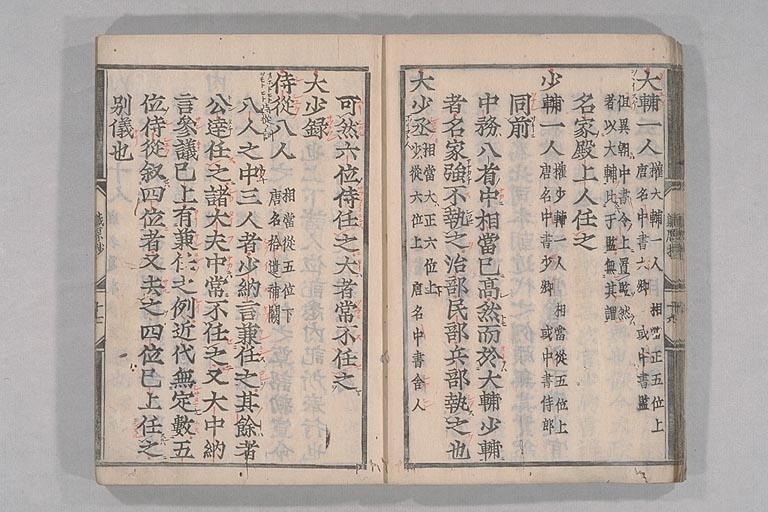 大輔一人 權大輔一人 相當正五位上
唐名中書六卿 或中書監
但異朝中書令上置監然
者以大輔比于監無其謂
名家殿上人任之
少輔一人 權少輔一人 相當從五位上
唐名中書少卿 或中書侍郎
同前
中務八省中相當已高然而於大輔少輔
者名家強不執之治部民部兵部執之也
大少丞 相當大正六位上
少從六位上 唐名中書舍人
可然六位侍任之大者常不任之
大少録
侍從八人 相當從五位下
唐名拾遺補闕
八人之中三人者少納言兼任之其餘者
公達任之諸大夫中常不任之又大中納
言參議已上有兼任之例近代無定數五
位侍從叙四位者又去之四位已上任之
別儀也
職原抄